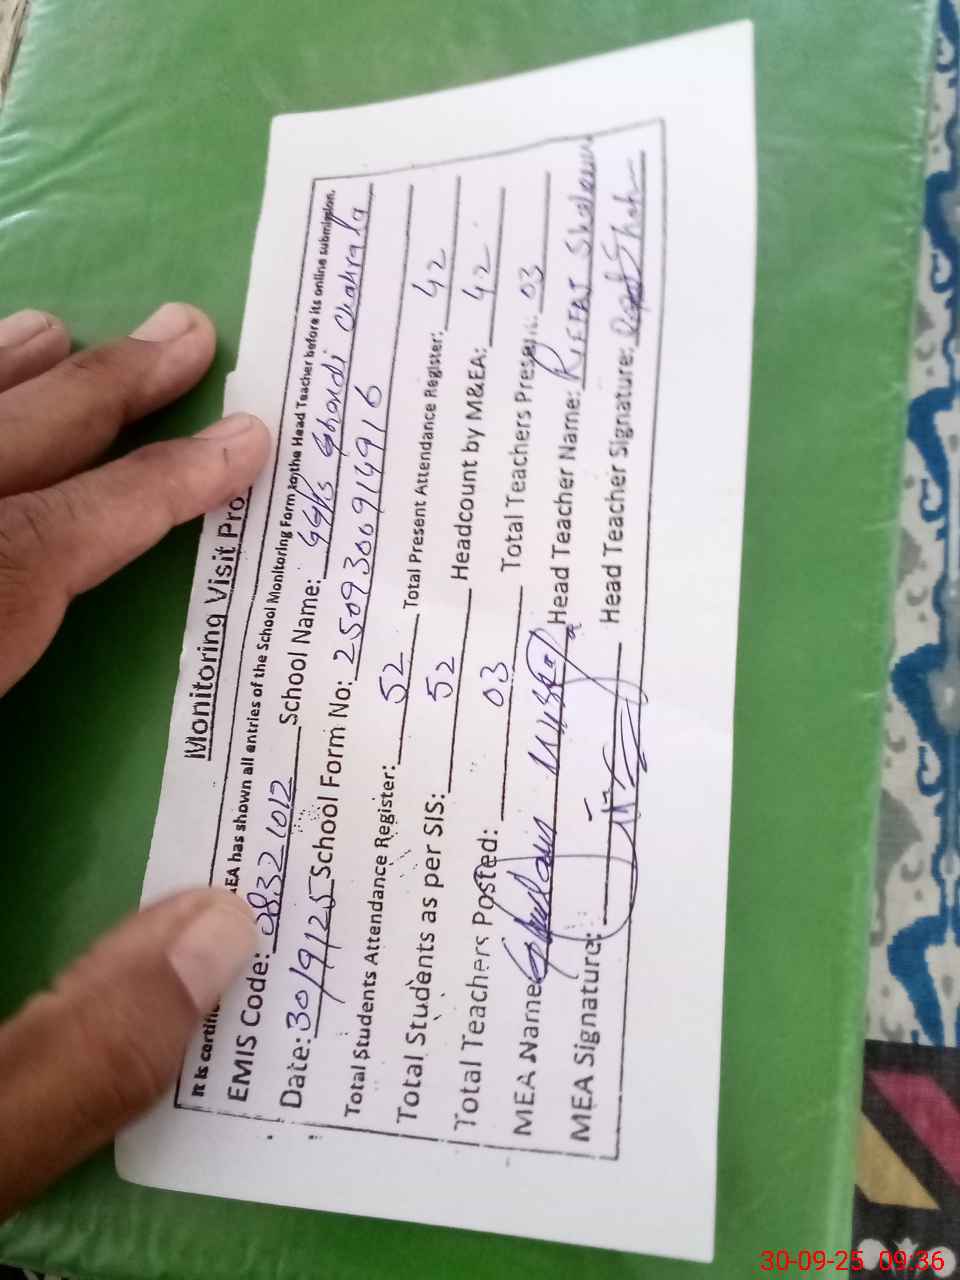 Monitoring Visit Pro
It is certifi EA has shown all entries of the School Monitoring Form to the Head Teacher before its online submission.
EMIS Code: 38321012 School Name: GGPS Ghondi Chakrala
Date: 30/9/25 School Form No: 2509300914916
Total Students Attendance Register: 52 Total Present Attendance Register: 42
Total Students as per SIS: 52 Headcount by M&EA: 42
Total Teachers Posted: 03 Total Teachers Present: 03
MEA Name Ghulam Mustafa Head Teacher Name: RIFFAT Shaheen
MEA Signature: Head Teacher Signature:
30-09-25 09:36